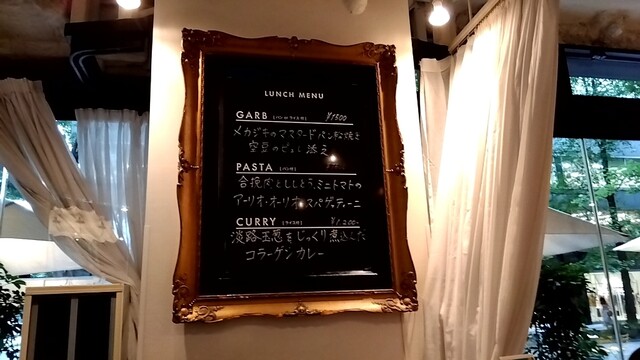 LUNCH MENU
GARB [パン or ライス付] ¥1500
メカジキのマスタードパン粉焼き
空豆のピュレ添え
PASTA [パン付]
合挽肉とししとう、ミニトマトの
アーリオ・オーリオ スパゲッティーニ
CURRY [ライス付] ¥1,200-
淡路玉葱をじっくり煮込んだ
コラーゲンカレー